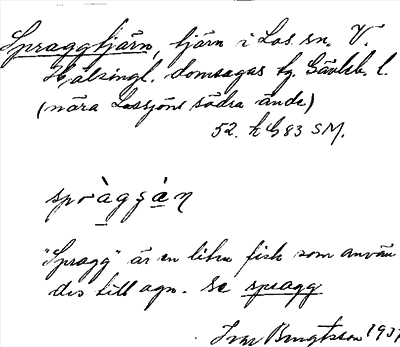 Spraggtjärn, tjärn i Los sn. V.
Hälsingl. domsagas tg. Gävleb. l.
(nära Lossjöns södra ände)
52. h G 83 SM.
"Spragg" är en liten fisk som använ
des till agn. Se spragg
Ivar Bengtsson 1937